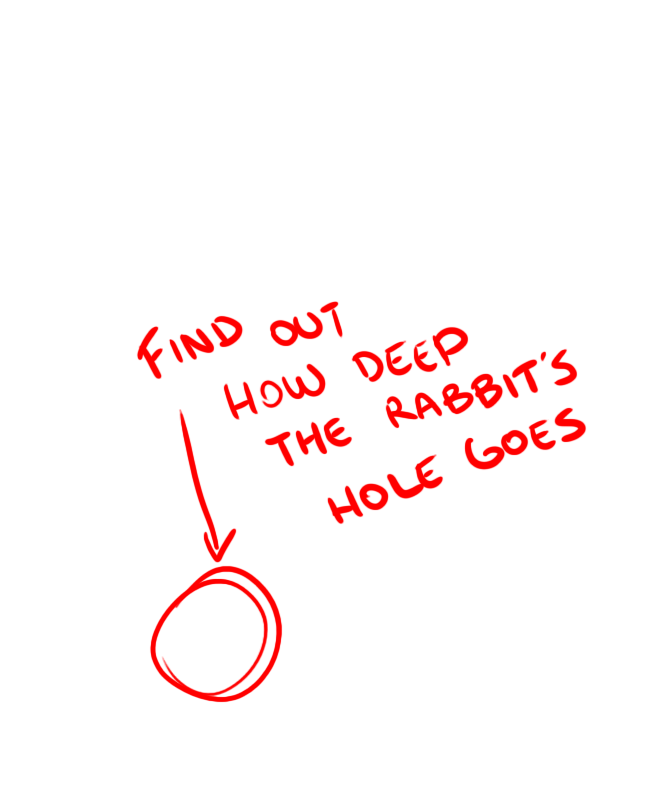 FIND OUT
HOW DEEP
THE RABBIT'S
HOLE GOES